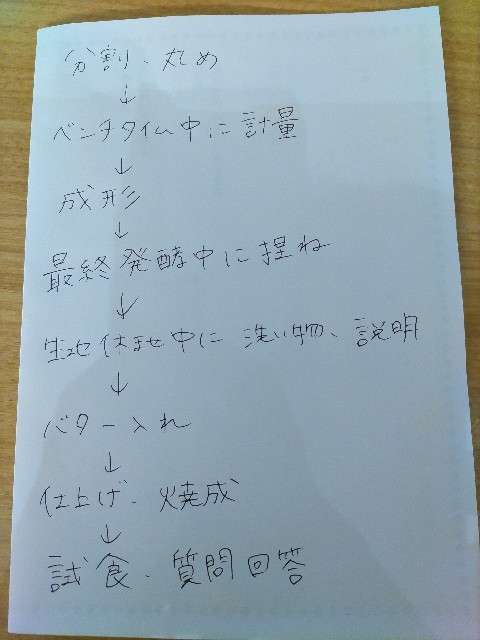 分割、丸め
↓
ベンチタイム中に計量
↓
成形
↓
最終発酵中に捏ね
↓
生地休ませ中に洗い物、説明
↓
バター入れ
↓
仕上げ、焼成
↓
試食、質問回答